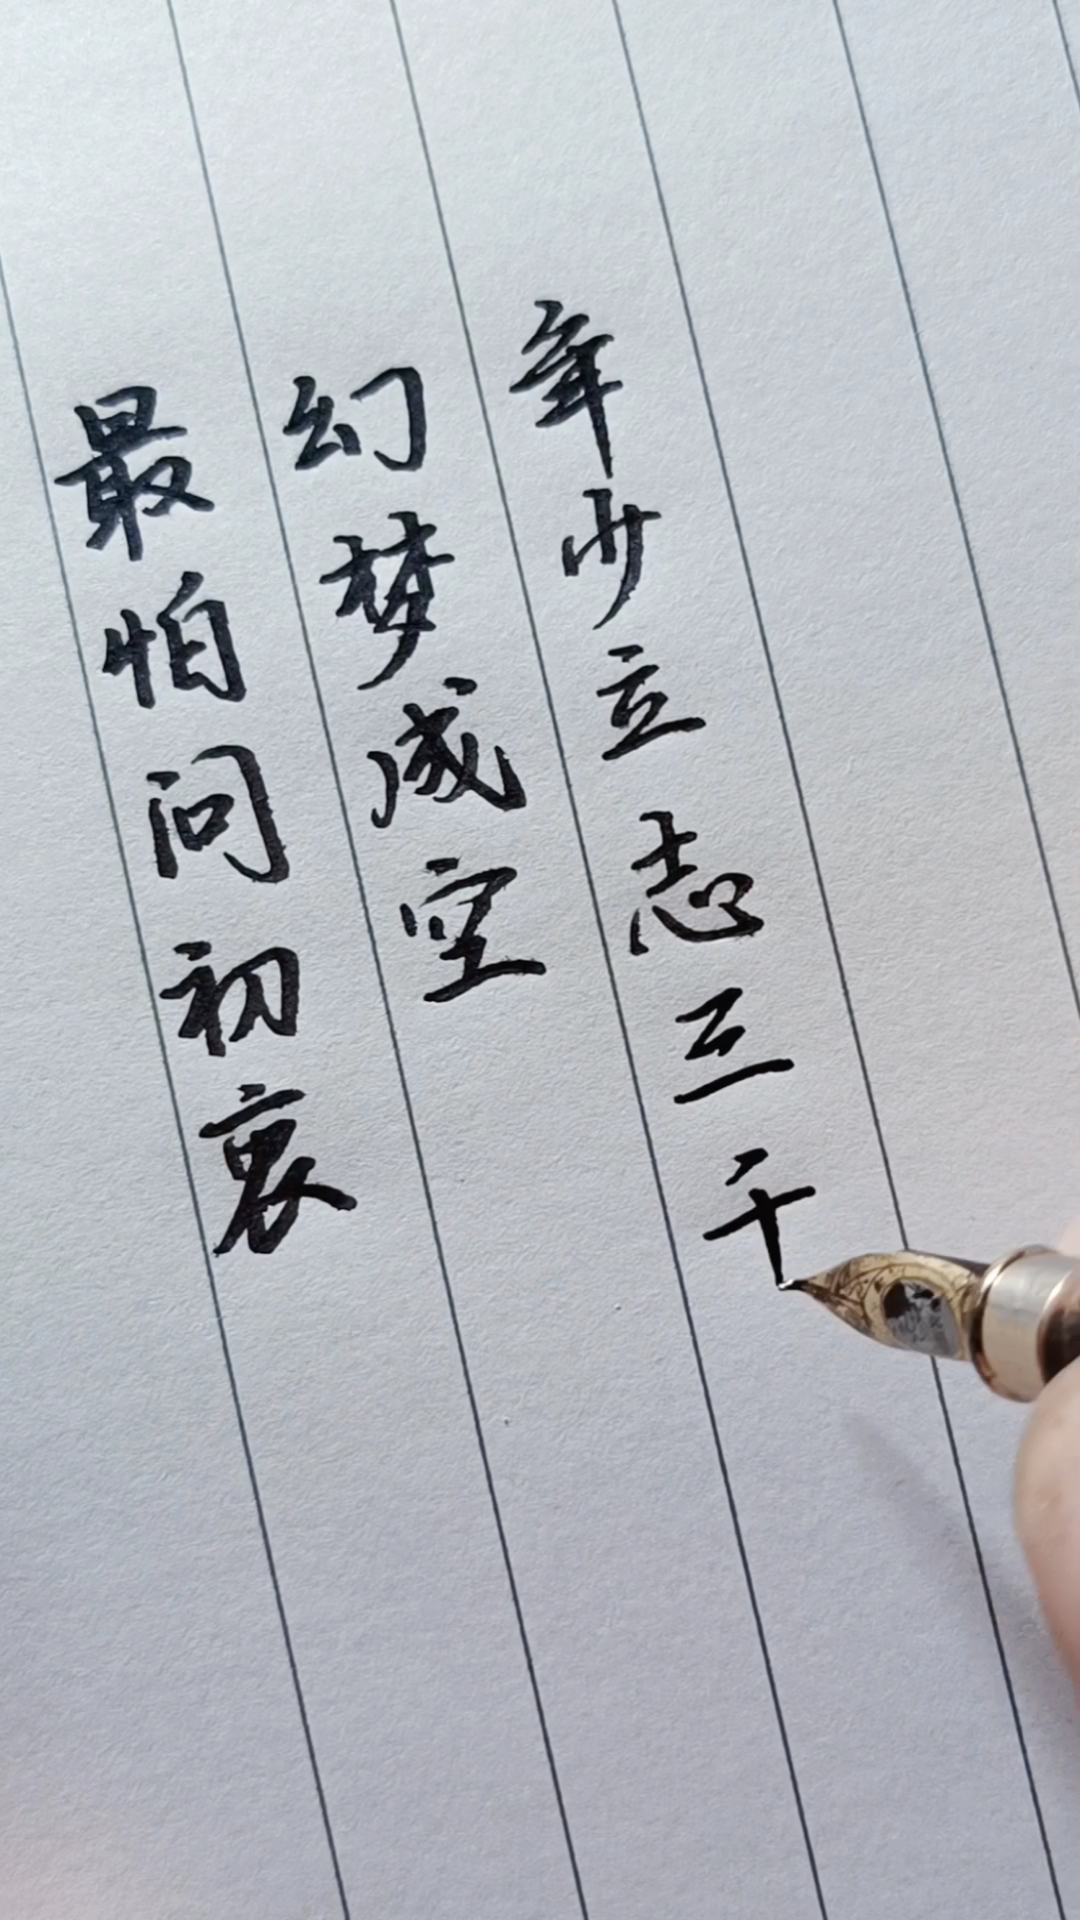 最怕问初衷
幻梦成空
年少立志三千